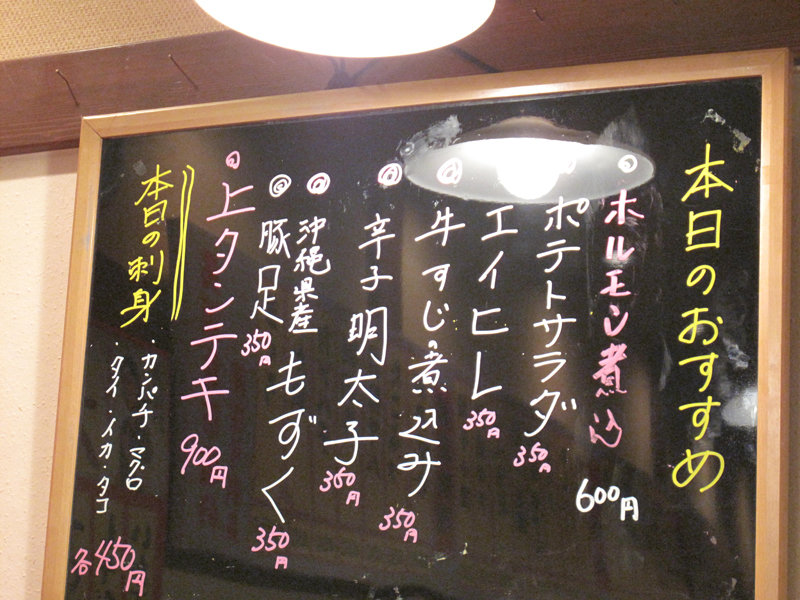 本日のおすすめ
ホルモン煮込 600円
ポテトサラダ 350円
エイヒレ 350円
牛すじの煮込み 350円
辛子明太子 350円
沖縄県産もずく 350円
豚足 350円
上タンテキ 900円
本日の刺身
・カンパチ・マグロ
・タイ・イカ・タコ
各450円